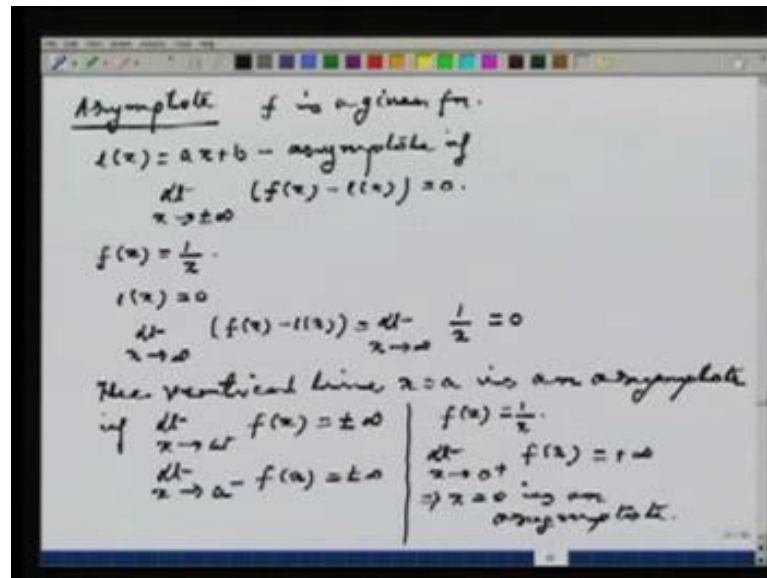 Asymptote f is a given fn.
l(x) = ax+b - asymptote if
lt x→±∞ (f(x) - l(x)) = 0.
f(x) = 1/x.
l(x) = 0
lt x→∞ (f(x) - l(x)) = lt x→∞ 1/x = 0
The vertical line x=a is an asymptote
if lt x→a+ f(x) = ±∞
lt x→a- f(x) = ±∞
f(x) = 1/x.
lt x→0+ f(x) = +∞
⇒ x=0 is an
asymptote.